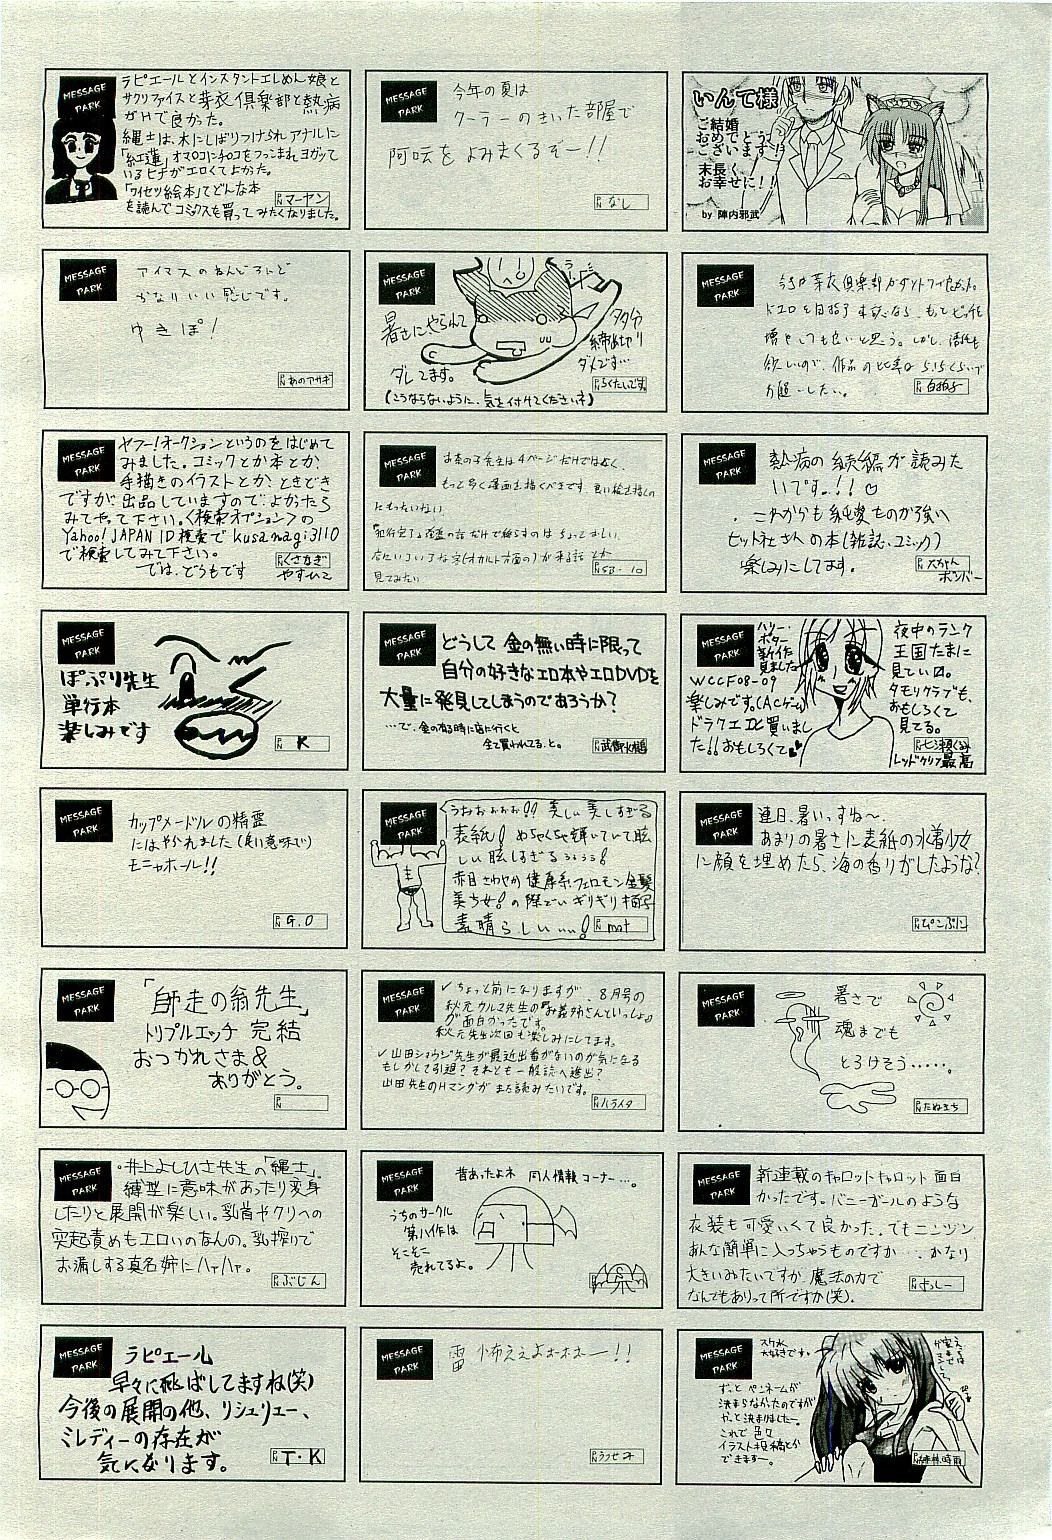 MESSAGE PARK
ラピエールとインスタントエレめん娘と
サクリファイスと芽衣倶楽部と熱病
がHで良かった。
縄士は、木にしばりつけられアナルに
「紅蓮」オマ〇コにチ〇コをつっこまれヨガッて
いるヒナがエロくてよかった。
「ワイセツ絵本」てどんな本
を読んでコミックスを買ってみたくなりました。
P.N マーヤン
MESSAGE PARK
今年の夏は
クーラーのきいた部屋で
阿吽をよみまくるぞー!!
P.N なし
いんて様
ご結婚
おめでとう
ございます!
末長く
お幸せに!!
by 陣内邪武
MESSAGE PARK
アイマスのねんどろいど
かなりいい感じです。
ゆきぽ!
P.N あのアサギ
MESSAGE PARK
暑さにやられて
ダレてます。
タタ分
締めきり
ダメです…
(こうならないように、気を付けてくださいネ)
P.N らくたいです
MESSAGE PARK
今号の芽衣倶楽部がダントツで良かった。
増やしても良いと思う。しかし、
欲しいので、作品の比率は5:5くらいで
お願いしたい。
P.N 白拍子
MESSAGE PARK
ヤフー!オークションというのをはじめて
みました。コミックとか本とか、
手描きのイラストとか、ときどき
ですが、出品していますので、よかったら
みてやって下さい。<検索オプション>の
Yahoo! JAPAN ID検索でkusanagi3110
で検索してみて下さい。
では、どうもです
P.N くさなぎ
やすひこ
MESSAGE PARK
お茶の子先生は4ページだけではなく、
もっと多く漫画を描くべきです。良い絵を描くの
にもったいない。
見てみたい
P.N SB-10
MESSAGE PARK
熱病の続編が読みた
いです…!!♡
これからも純愛ものが強い
ヒット社さんの本(雑誌、コミック)
楽しみにしてます。
P.N 大ちゃん
ボンバー
MESSAGE PARK
ぽぷり先生
単行本
楽しみです
P.N K
MESSAGE PARK
どうして金の無い時に限って
自分の好きなエロ本やエロDVDを
大量に発見してしまうのであろうか?
…で、金の有る時に店に行くと
全て買われてる、と。
MESSAGE PARK
ハリー・
ポッター
新作
見ました
WCCF08-09
楽しみです。(ACゲーム)
ドラクエIXと買いまし
た!!おもしろくて
夜中のランク
王国たまに
見ている。
タモリクラブも、
おもしろくて
見てる。
P.N 七瀬くみ
レッドクリフ最高
MESSAGE PARK
カップメードルの精霊
にはやられました(良い意味で)
モニャホール!!
P.N G.O
MESSAGE PARK
うおおぉぉぉ!!美しい美しすぎる
表紙!めちゃくちゃ輝いていて眩
しい眩しすぎるぅぅぅぅ!
赤目さわやか健康系フェロモン金髪
美少女!の際どいギリギリ描写
素晴らしいぃぃ!
P.N mat
MESSAGE PARK
連日、暑いっすね〜。
あまりの暑さに表紙の水着少女
に顔を埋めたら、海の香りがしたような?
P.N ぴこぷに
MESSAGE PARK
「師走の翁先生」
トリプルエッチ 完結
おつかれさま&
ありがとう。
P.N
MESSAGE PARK
✓ちょっと前になりますが、8月号の
秋元カルマ先生の『お義姉さんといっしょ』
が面白かったです。
秋元先生次回も楽しみにしてます。
✓山田ショウジ先生が最近出番がないのが気になる
もしかして引退?それとも一般誌へ進出?
山田先生のHマンガがまた読みたいです。
P.N ハライタ
MESSAGE PARK
暑さで
魂までも
とろけそう……。
P.N たぬきち
MESSAGE PARK
・井上よしひさ先生の「縄士」。
縛型に意味があったり変身
したりと展開が楽しい。乳首やクリへの
突起責めもエロいのなんの。乳搾りで
お漏しする真名姉にハァハァ。
P.N ぶじん
MESSAGE PARK
昔あったよネ 同人情報コーナー…。
うちのサークル
第八作は
そこそこ
売れてるよ。
MESSAGE PARK
新連載のキャロットキャロット面白
かったです。バニーガールのような
衣装も可愛いくて良かった。でもニンジン
あんな簡単に入っちゃうものですか…かなり
大きいみたいですが、魔法の力で
なんでもありって所ですか(笑)。
P.N ホッシー
MESSAGE PARK
ラピエール
早々に飛ばしてますね(笑)
今後の展開の他、リシュリュー、
ミレディーの存在が
気になります。
P.N T・K
MESSAGE PARK
雷 怖ええよぉぉぉー!!
P.N うつせみ
MESSAGE PARK
スク水
大好きです。
ずっとペンネームが
決まらなかったのですが
やっと決まりましたー。
これで色々
イラスト投稿とか
できますー。